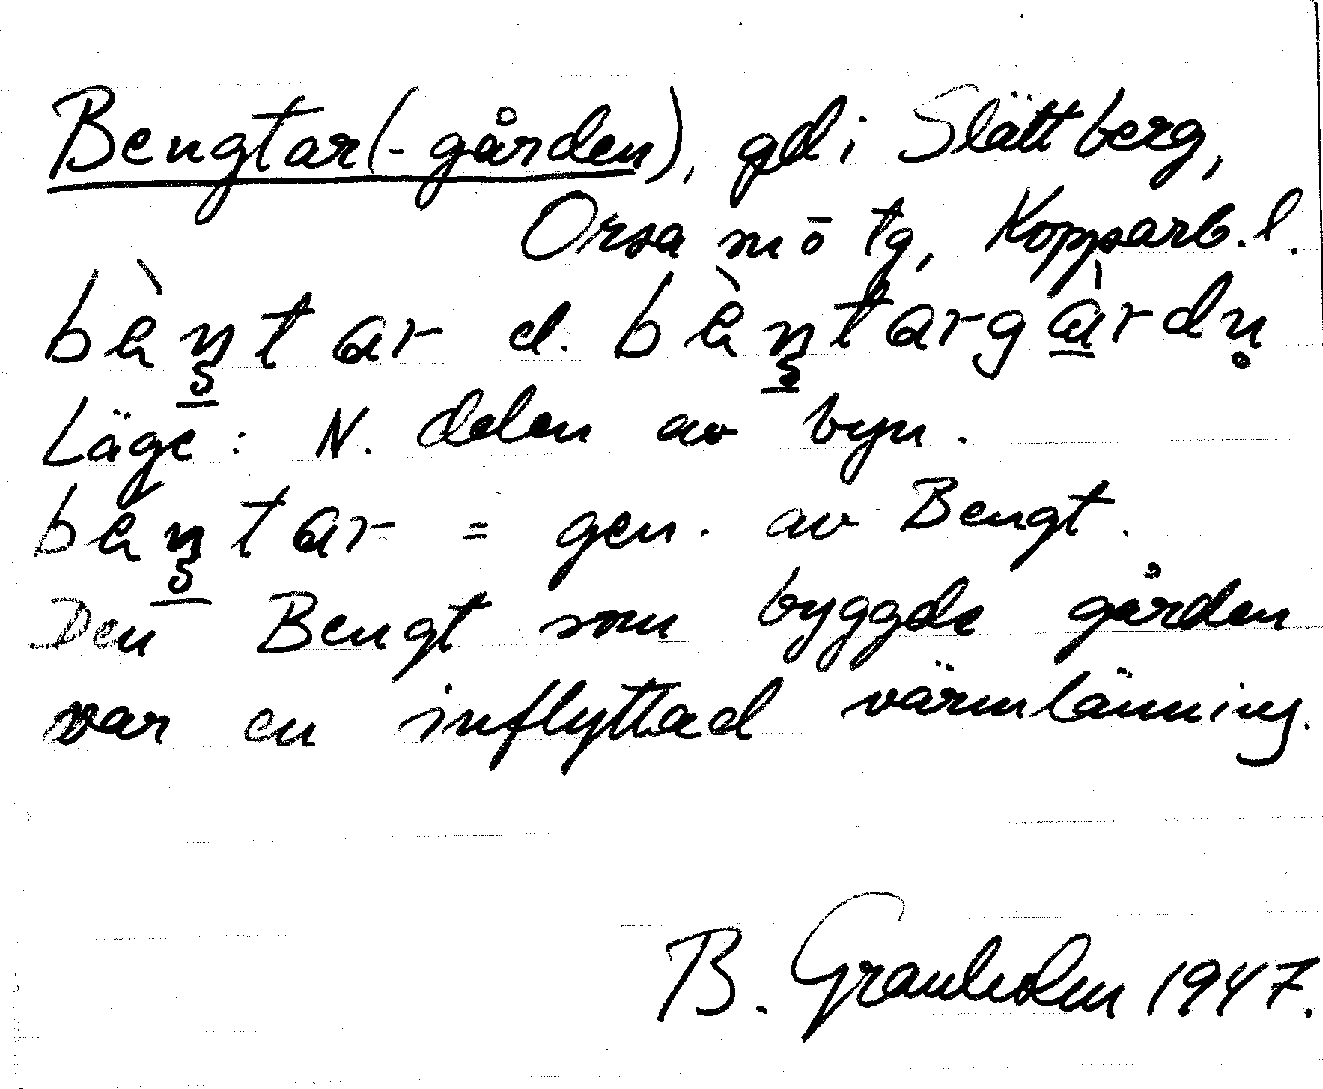 Bengtar(-gården), gd i Slättberg,
Orsa mō tg, Kopparb. l.
bæ̀n̥tar el. bæ̀n̥targàrdn̥
Läge: N. delen av byn.
bæn̥tar = gen. av Bengt.
Den Bengt som byggde gården
var en inflyttad värmlänning.
B. Granholm 1947.